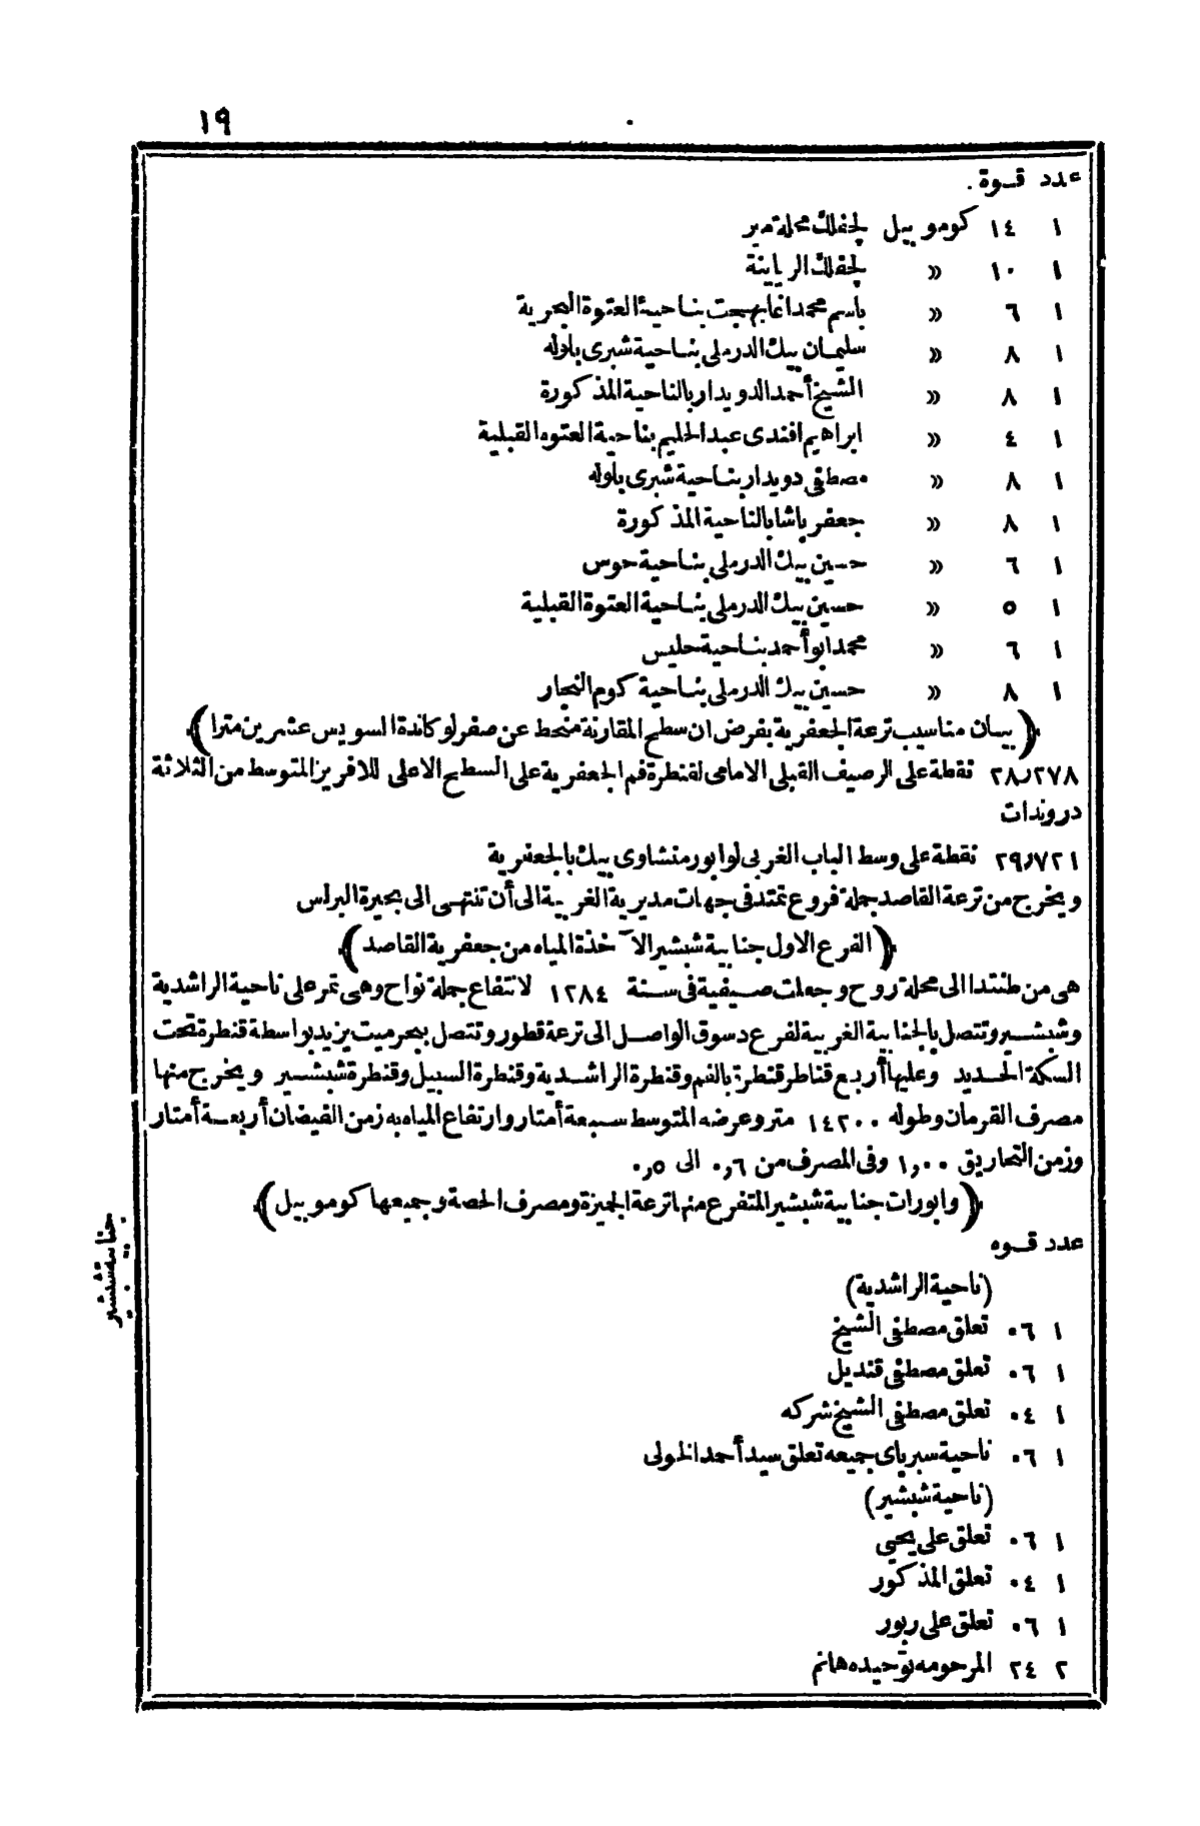 ١٩
عدد قـوة
١ ١٤ كوموبيل لجفلك محلة مير
١ ١٠ » لجفلك الرياينة
١ ٦ » باسم محمد اغا بهجت بناحية العتوة البحرية
١ ٨ » سليمان بيك الدرملى بناحية شبرى بلوله
١ ٨ » الشيخ أحمد الدويدار بالناحية المذكورة
١ ٤ » ابراهيم افندى عبد الحليم بناحية العتوه القبلية
١ ٨ » مصطفى دويدار بناحية شبرى بلوله
١ ٨ » جعفر باشا بالناحية المذكورة
١ ٦ » حسين بيك الدرملى بناحية حوس
١ ٥ » حسين بيك الدرملى بناحية العتوة القبلية
١ ٦ » محمد ابو أحمد بناحية حليس
١ ٨ » حسين بيك الدرملى بناحية كوم النجار
(بيان مناسيب ترعة الجعفرية بفرض ان سطح المقارنة منحط عن صفر لوكاندة السويس عشرين مترا)
٢٨٫٢٧٨ نقطة على الرصيف القبلى الامامى لقنطرة فم الجعفرية على السطح الاعلى للافريز المتوسط من الثلاثة
دروندات
٢٩٫٧٢١ نقطة على وسط الباب الغربى لوابور منشاوى بيك بالجعفرية
ويخرج من ترعة القاصد جملة فروع تمتد فى جهات مديرية الغربية الى أن تنتهى الى بحيرة البرلس
(الفرع الاول جنابية شبشير الآخذة المياه من جعفرية القاصد)
هى من طنتدا الى محلة روح وجعلت صيفية فى سنة ١٢٨٤ لانتفاع جملة نواح وهى تمر على ناحية الراشدية
وشبشير وتتصل بالجنابية الغربية لفرع دسوق الواصل الى ترعة قطور وتتصل ببحر ميت يزيد بواسطة قنطرة تحت
السكة الحديد وعليها أربع قناطر قنطرة بالفم وقنطرة الراشدية وقنطرة السبيل وقنطرة شبشير ويخرج منها
مصرف القرمان وطوله ١٤٢٠٠ متر وعرضه المتوسط سبعة أمتار وارتفاع المياه به زمن الفيضان أربعة أمتار
وزمن التحاريق ١٫٠٠ وفى المصرف من ٠٫٦ الى ٠٫٥
(وابورات جنابية شبشير المتفرع منها ترعة الجميزة ومصرف الحصة وجميعها كوموبيل)
جنابية شبشير
عدد قـوه
(ناحية الراشدية)
١ ٠٦ تعلق مصطفى الشيخ
١ ٠٦ تعلق مصطفى قنديل
١ ٠٤ تعلق مصطفى الشيخ شركه
١ ٠٦ ناحية سبرباى جميعه تعلق سيد أحمد الخولى
(ناحية شبشير)
١ ٠٦ تعلق على يحيى
١ ٠٤ تعلق المذكور
١ ٠٦ تعلق على ربور
٢ ٢٤ المرحومه توحيده هانم